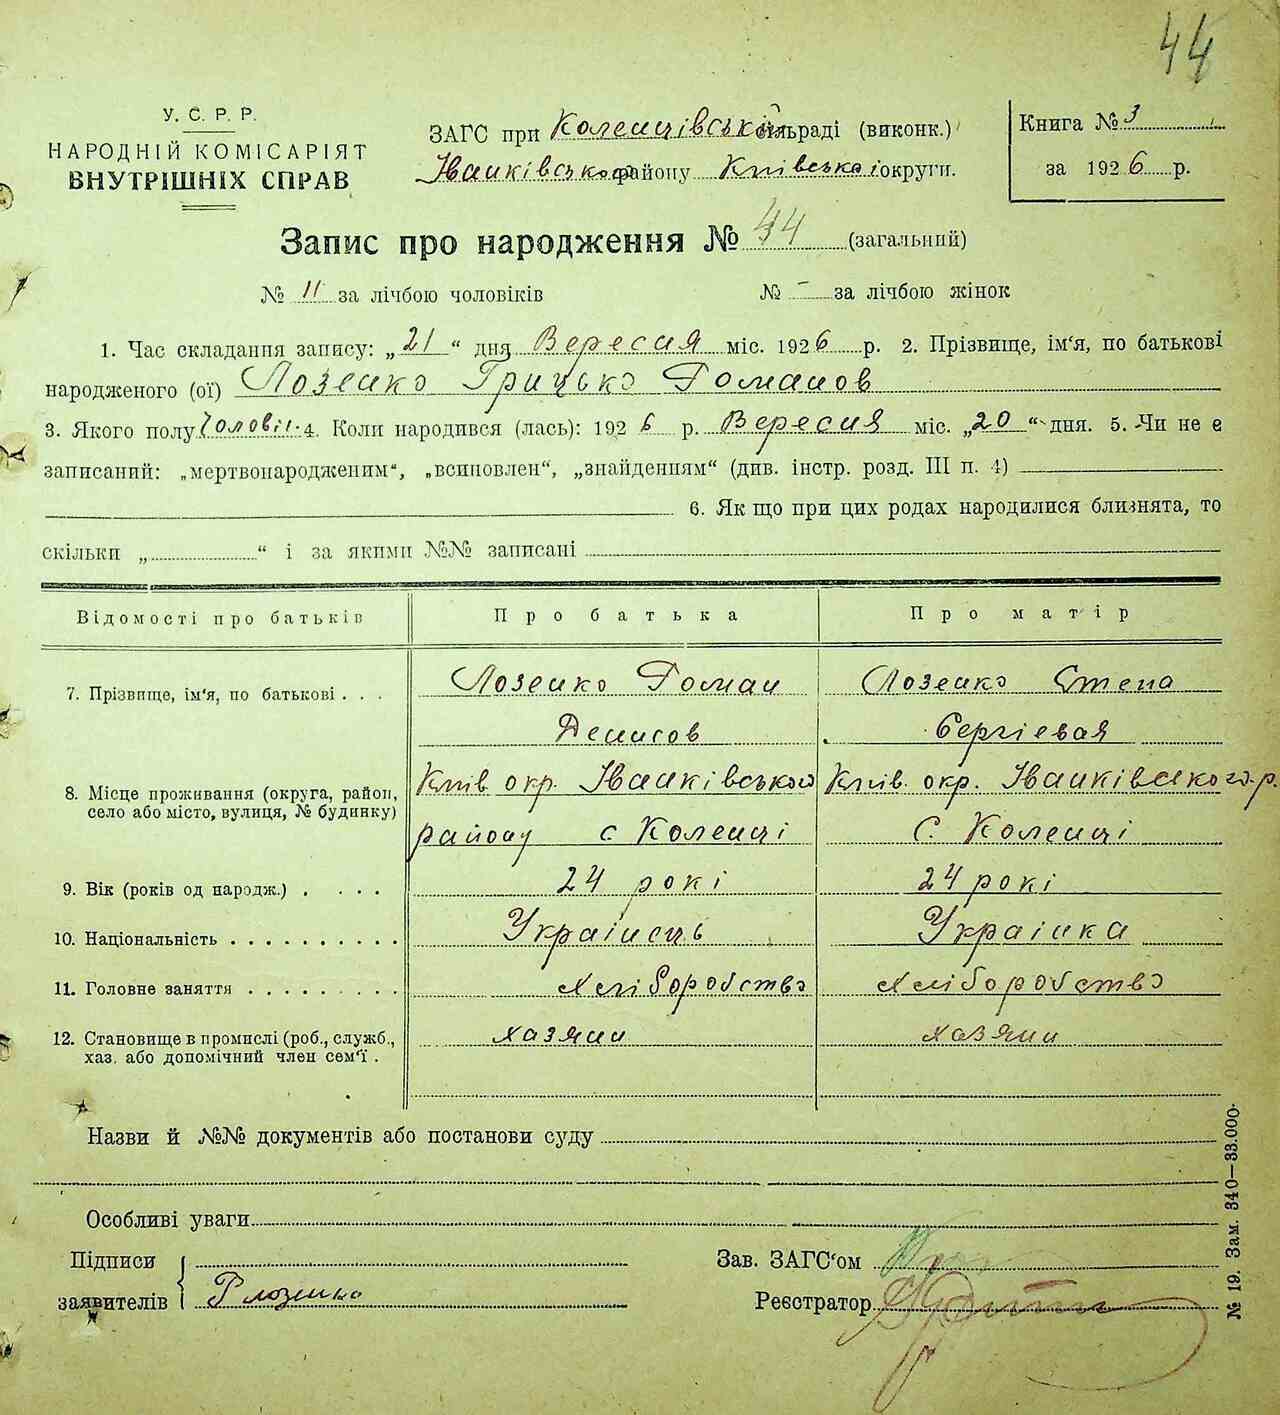 44
У. С. Р. Р.
НАРОДНІЙ КОМІСАРІЯТ
ВНУТРІШНІХ СПРАВ
ЗАГС при Коленцівській сільраді (виконк.)
Іванківського району Київської округи.
Книга № 3
за 1926 р.
Запис про народження № 44 (загальний)
№ 11 за лічбою чоловіків № - за лічбою жінок
1. Час складання запису: „21“ дня Вересня міс. 1926 р. 2. Прізвище, ім'я, по батькові
народженого (ої) Лозенко Грицько Романов
3. Якого полу чоловіч. 4. Коли народився (лась): 1926 р. Вересня міс. „20“ дня. 5. Чи не є
записаний: „мертвонародженим“, „всиновлен“, „знайденням“ (див. інстр. розд. III п. 4)
6. Як що при цих родах народилися близнята, то
скільки „ “ і за якими №№ записані
Відомості про батьків Про батька Про матір
7. Прізвище, ім'я, по батькові . . . Лозенко Роман Лозенко Степа
Денисов Сергіевая
8. Місце проживання (округа, район, село або місто, вулиця, № будинку) Київ. окр. Іванківського Київ. окр. Іванківського р.
району с Коленці С. Коленці
9. Вік (років од народж.) . . . . 24 рокі 24 рокі
10. Національність . . . . . . . . . . Українець Українка
11. Головне заняття . . . . . . . . . хліборобство хліборобство
12. Становище в промислі (роб., служб., хаз. або допомічний член сем'ї . хазяин хазяин
Назви й №№ документів або постанови суду
Особливі уваги
Підписи
заявителів Р Лозенко
Зав. ЗАГС'ом
Реєстратор
№ 19. Зам. 340—33.000.